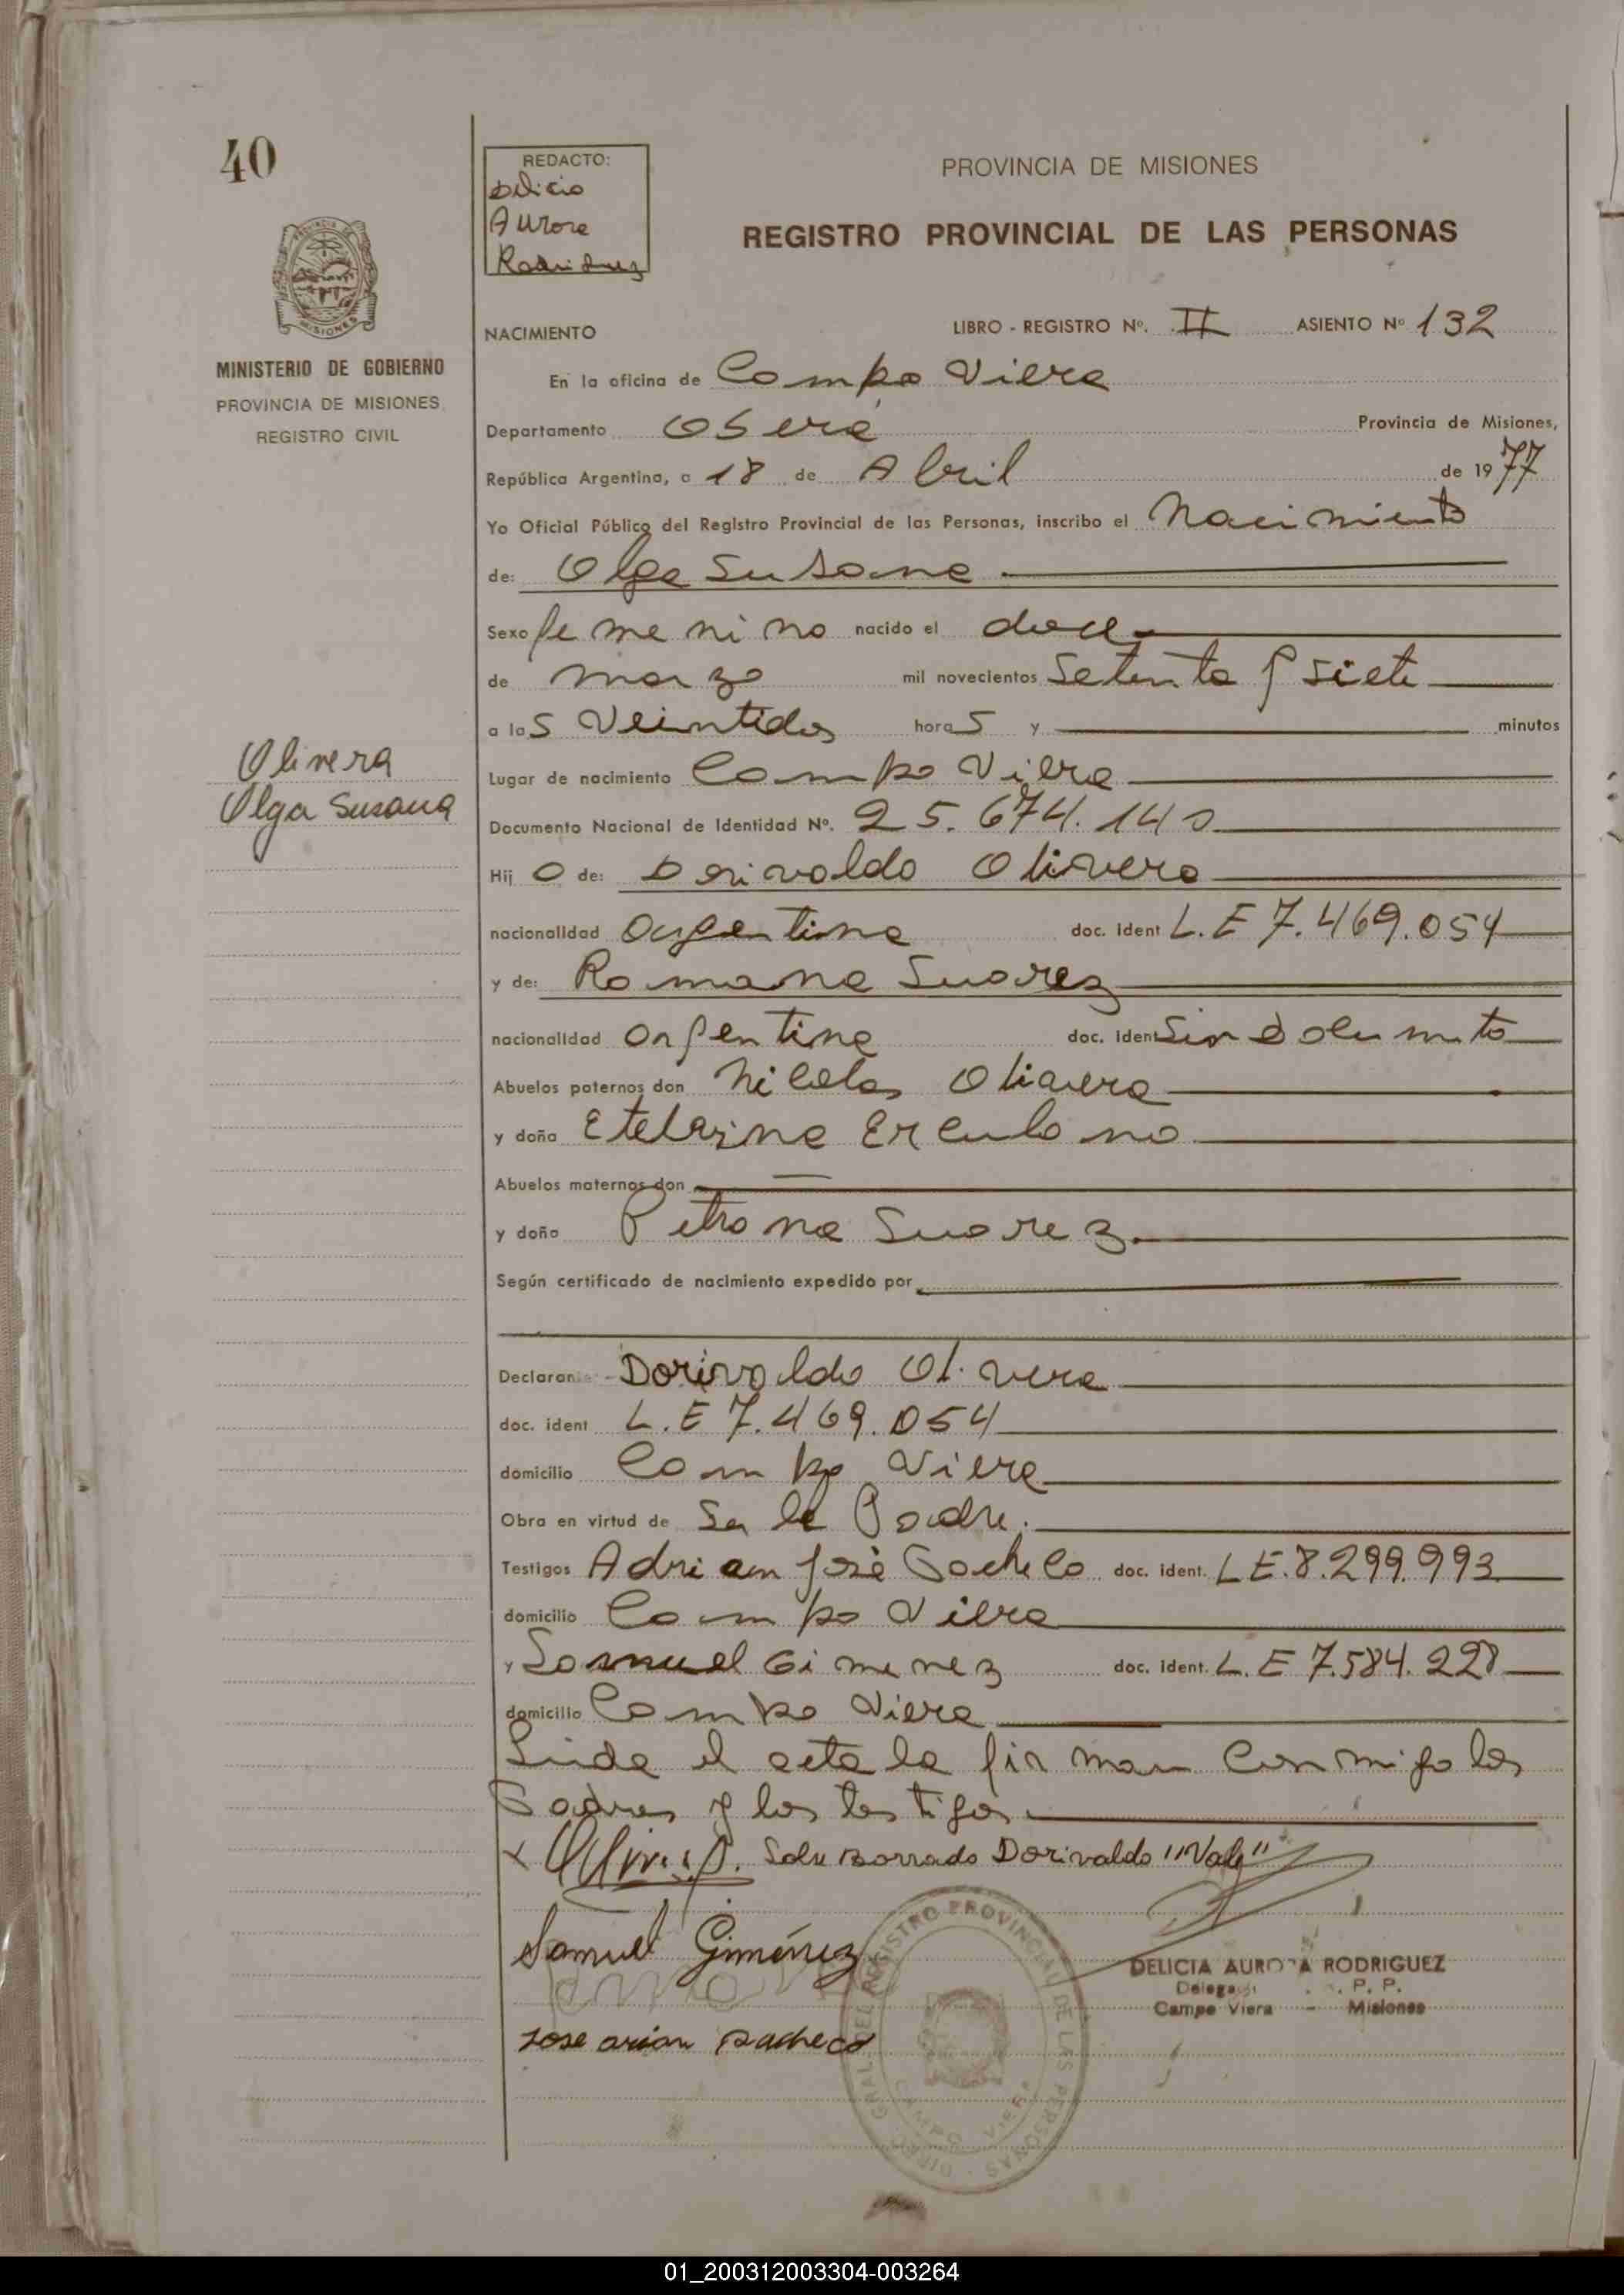 40
REDACTO:
Delicia
Aurora
Rodriguez
PROVINCIA DE MISIONES
REGISTRO PROVINCIAL DE LAS PERSONAS
MISIONES
MINISTERIO DE GOBIERNO
PROVINCIA DE MISIONES
REGISTRO CIVIL
NACIMIENTO LIBRO - REGISTRO Nº. II ASIENTO Nº 132
En la oficina de Campo Viera
Departamento Oberá Provincia de Misiones,
República Argentina, a 18 de Abril de 1977
Yo Oficial Público del Registro Provincial de las Personas, inscribo el Nacimiento
de: Olga Susana
Sexo femenino nacido el doce
de marzo mil novecientos setenta y siete
a las veintidos horas y minutos
Olivera
Olga Susana
Lugar de nacimiento Campo Viera
Documento Nacional de Identidad Nº. 25.674.140
Hij o de: Dorivaldo Olivera
nacionalidad argentina doc. ident L.E 7.469.054
y de: Romana Suarez
nacionalidad argentina doc. ident Sin Documto
Abuelos paternos don Nicolas Olivera
y doña Etelvina Erculano
Abuelos maternos don
y doña Petrona Suarez
Según certificado de nacimiento expedido por
Declarante Dorivaldo Olivera
doc. ident L.E 7.469.054
domicilio Campo Viera
Obra en virtud de Ser le Padre.
Testigos Adrian José Pacheco doc. ident. L E.8.299.993
domicilio Campo Viera
y Samuel Gimenez doc. ident. L.E 7.584.228
domicilio Campo Viera
Leida el acta la firman conmigo los
Padres y los testigos
Sobre Borrado Dorivaldo "Vale"
Samuel Giménez
DELICIA AURORA RODRIGUEZ
P. P.
Campo Viera - Misiones
Jose arian pacheco
GRAL. DEL REGISTRO PROVINCIAL DE LAS PERSONAS · DIREC.
CAMPO VIERA
01_200312003304-003264